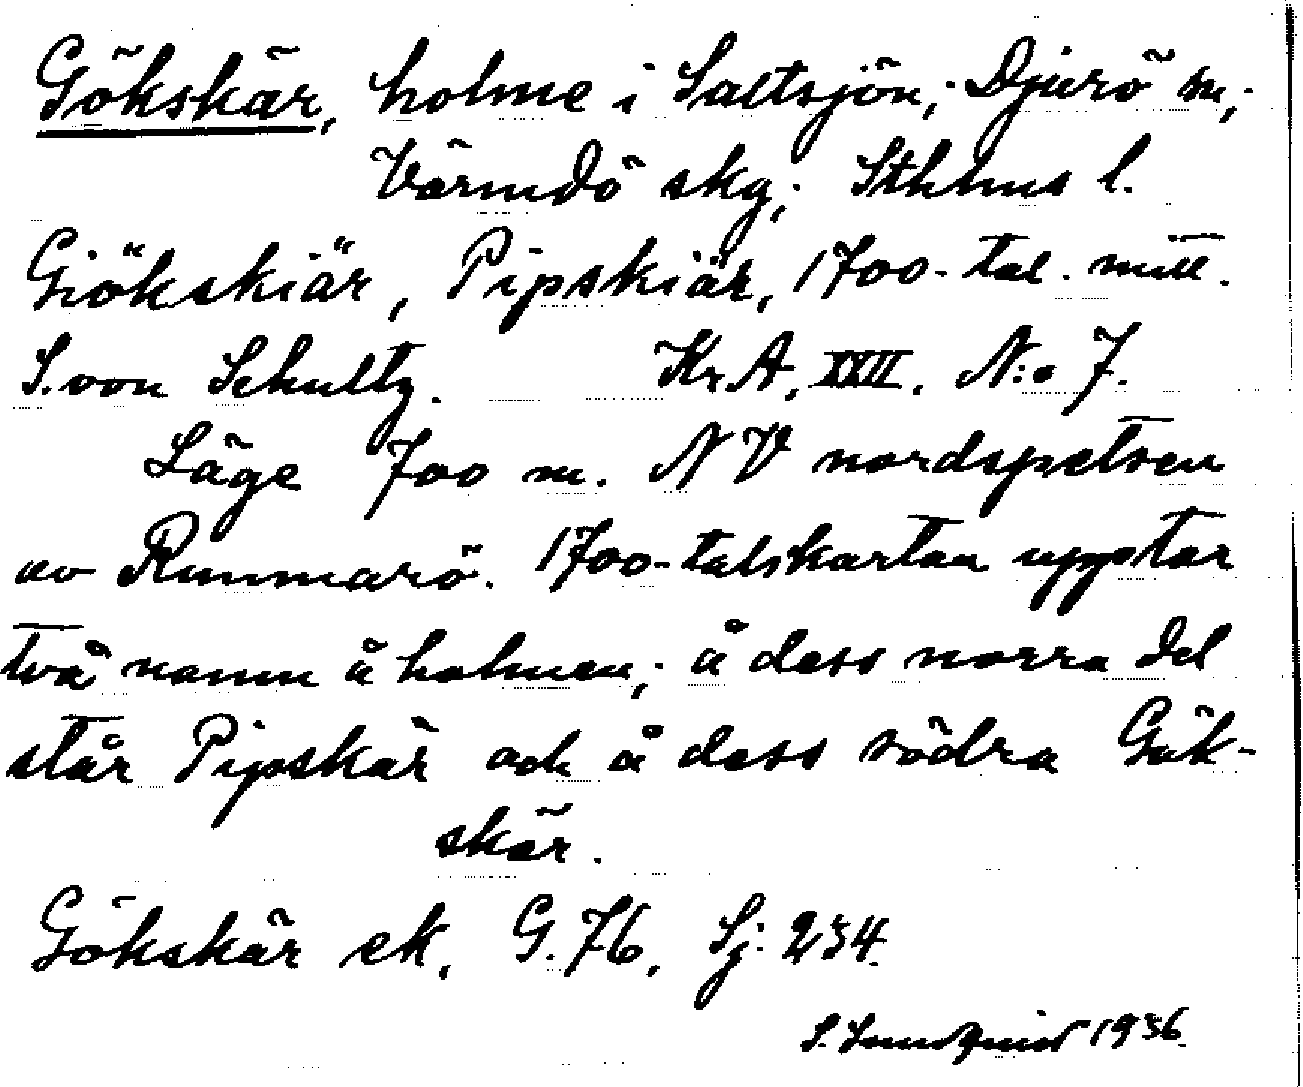 Gökskär, holme i Saltsjön; Djurö sn,
Värmdö skg; Sthlms l.
Giökskiär, Pipskiär, 1700-tal. mitt.
S. von Schultz. Kr. A. XXII. N:o 7.
Läge 700 m. NV nordspetsen
av Runmarö. 1700-talskartan upptar
två namn å holmen; å dess norra del
står Pipskär och å dess södra Gök-
skär.
Gökskär ek. G. 76. Sj: 234.
1936